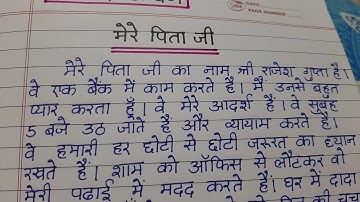 DATE
PAGE NUMBER
मेरे पिता जी
मेरे पिता जी का नाम श्री राजेश गुप्ता है।
वे एक बैंक में काम करते हैं। मैं उनसे बहुत
प्यार करता हूँ। वे मेरे आदर्श हैं। वे सुबह
5 बजे उठ जाते हैं और व्यायाम करते हैं।
वे हमारी हर छोटी से छोटी जरूरत का ध्यान
रखते हैं। शाम को ऑफिस से लौटकर वो
मेरी पढाई में मदद करते हैं। घर में दादा